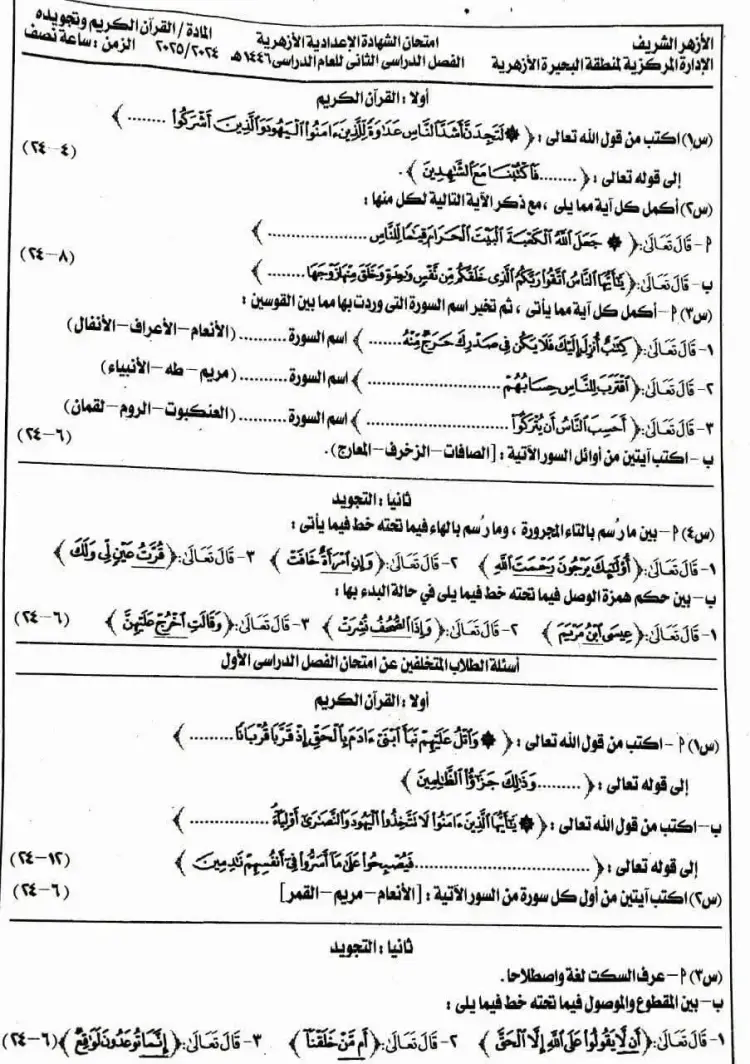 الأزهر الشريف
امتحان الشهادة الإعدادية الأزهرية
المادة / القرآن الكريم وتجويده
الإدارة المركزية لمنطقة البحيرة الأزهرية
الفصل الدراسى الثانى للعام الدراسى ١٤٤٦هـ
٢٠٢٥/٢٠٢٤ الزمن : ساعة نصف
أولا : القرآن الكريم
(س١) اكتب من قول الله تعالى : ﴿ ۞ لَتَجِدَنَّ أَشَدَّ ٱلنَّاسِ عَدَٰوَةً لِّلَّذِينَ ءَامَنُوا۟ ٱلْيَهُودَ وَٱلَّذِينَ أَشْرَكُوا۟ ........ ﴾
إلى قوله تعالى : ﴿ ........فَٱكْتُبْنَا مَعَ ٱلشَّٰهِدِينَ ﴾ . (٤-٢٤)
(س٢) أكمل كل آية مما يلى ، مع ذكر الآية التالية لكل منها :
٢- قَالَ تَعَالَىٰ: ﴿ ۞ جَعَلَ ٱللَّهُ ٱلْكَعْبَةَ ٱلْبَيْتَ ٱلْحَرَامَ قِيَٰمًا لِّلنَّاسِ .................. ﴾
ب- قَالَ تَعَالَىٰ: ﴿ يَٰٓأَيُّهَا ٱلنَّاسُ ٱتَّقُوا۟ رَبَّكُمُ ٱلَّذِى خَلَقَكُم مِّن نَّفْسٍ وَٰحِدَةٍ وَخَلَقَ مِنْهَا زَوْجَهَا........ ﴾ (٨-٢٤)
(س٣) ٢- أكمل كل آية مما يأتى ، ثم تخير اسم السورة التى وردت بها مما بين القوسين :
١- قَالَ تَعَالَىٰ: ﴿ كِتَٰبٌ أُنزِلَ إِلَيْكَ فَلَا يَكُن فِى صَدْرِكَ حَرَجٌ مِّنْهُ ........ ﴾ اسم السورة .......... (الأنعام-الأعراف-الأنفال)
٢- قَالَ تَعَالَىٰ: ﴿ ٱقْتَرَبَ لِلنَّاسِ حِسَابُهُمْ .................. ﴾ اسم السورة .......... (مريم-طه-الأنبياء)
٣- قَالَ تَعَالَىٰ: ﴿ أَحَسِبَ ٱلنَّاسُ أَن يُتْرَكُوٓا۟ .................. ﴾ اسم السورة .......... (العنكبوت-الروم-لقمان)
ب- اكتب آيتين من أوائل السور الآتية : [الصافات-الزخرف-المعارج) . (٦-٢٤)
ثانيا : التجويد
(س٤) ٢- بين ما رُسم بالتاء المجرورة ، وما رُسم بالهاء فيما تحته خط فيما يأتى :
١- قَالَ تَعَالَىٰ: ﴿ أُو۟لَٰٓئِكَ يَرْجُونَ رَحْمَتَ ٱللَّهِ ﴾ ٢- قَالَ تَعَالَىٰ: ﴿ وَإِنِ ٱمْرَأَةٌ خَافَتْ ﴾ ٣- قَالَ تَعَالَىٰ: ﴿ قُرَّتُ عَيْنٍ لِّى وَلَكَ ﴾
ب- بين حكم همزة الوصل فيما تحته خط فيما يلى في حالة البدء بها :
١- قَالَ تَعَالَىٰ: ﴿ عِيسَى ٱبْنُ مَرْيَمَ ﴾ ٢- قَالَ تَعَالَىٰ: ﴿ وَإِذَا ٱلصُّحُفُ نُشِرَتْ ﴾ ٣- قَالَ تَعَالَىٰ: ﴿ وَقَالَتِ ٱخْرُجْ عَلَيْهِنَّ ﴾ (٦-٢٤)
أسئلة الطلاب المتخلفين عن امتحان الفصل الدراسى الأول
أولا : القرآن الكريم
(س١) ٢- اكتب من قول الله تعالى : ﴿ ۞ وَٱتْلُ عَلَيْهِمْ نَبَأَ ٱبْنَىْ ءَادَمَ بِٱلْحَقِّ إِذْ قَرَّبَا قُرْبَانًا .......... ﴾
إلى قوله تعالى : ﴿ .........وَذَٰلِكَ جَزَٰٓؤُا۟ ٱلظَّٰلِمِينَ ﴾
ب- اكتب من قول الله تعالى : ﴿ ۞ يَٰٓأَيُّهَا ٱلَّذِينَ ءَامَنُوا۟ لَا تَتَّخِذُوا۟ ٱلْيَهُودَ وَٱلنَّصَٰرَىٰٓ أَوْلِيَآءَ .............. ﴾
إلى قوله تعالى : ﴿ ..............................فَيُصْبِحُوا۟ عَلَىٰ مَآ أَسَرُّوا۟ فِىٓ أَنفُسِهِمْ نَٰدِمِينَ ﴾ (١٢-٢٤)
(س٢) اكتب آيتين من أول كل سورة من السور الآتية : [الأنعام-مريم-القمر] (٦-٢٤)
ثانيا : التجويد
(س٣) ٢- عرف السكت لغة واصطلاحا .
ب- بين المقطوع والموصول فيما تحته خط فيما يلى :
١- قَالَ تَعَالَىٰ: ﴿ أَن لَّا يَقُولُوا۟ عَلَى ٱللَّهِ إِلَّا ٱلْحَقَّ ﴾ ٢- قَالَ تَعَالَىٰ: ﴿ أَم مَّنْ خَلَقْنَآ ﴾ ٣- قَالَ تَعَالَىٰ: ﴿ إِنَّمَا تُوعَدُونَ لَوَٰقِعٌ ﴾ (٦-٢٤)